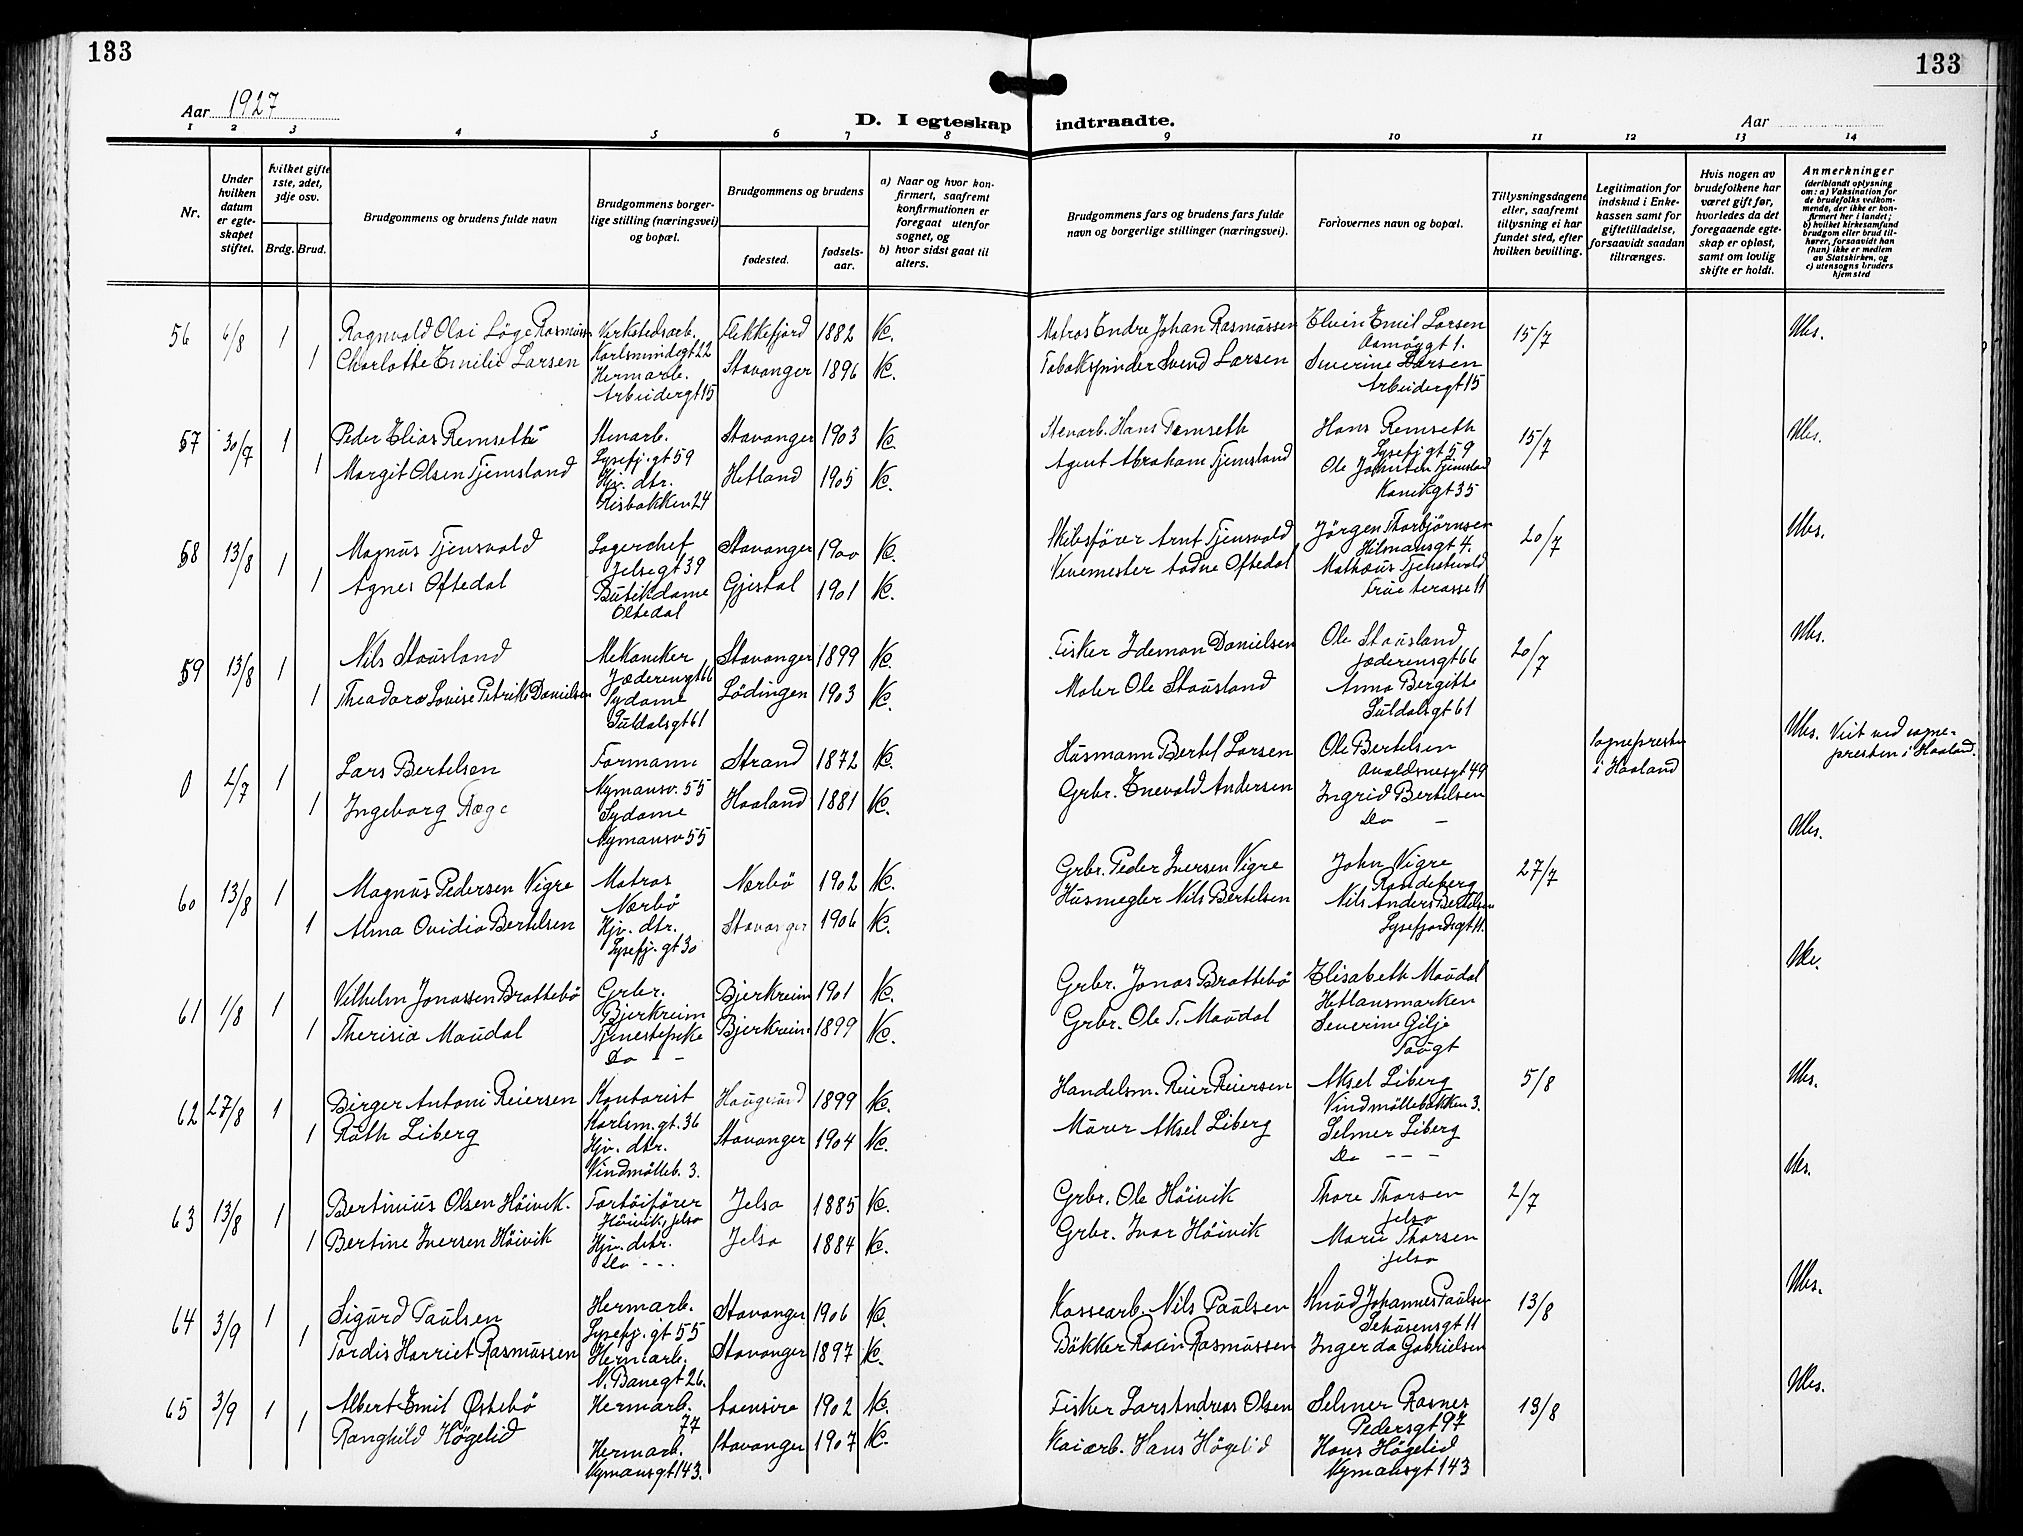 133
133
Aar 1927
D. I egteskap indtraadte.
Aar
1 2 3 4 5 6 7 8 9 10 11 12 13 14
Nr.
Under hvilken datum er egteskapet stiftet.
hvilket gifte 1ste, 2det, 3dje osv.
Brdg. Brud.
Brudgommens og brudens fulde navn
Brudgommens borgerlige stilling (næringsvei) og bopæl.
Brudgommens og brudens
fødested.
fødselsaar.
a) Naar og hvor konfirmert, saafremt konfirmationen er foregaat utenfor sognet, og
b) hvor sidst gaat til alters.
Brudgommens fars og brudens fars fulde navn og borgerlige stillinger (næringsvei).
Forlovernes navn og bopæl.
Tillysningsdagene eller, saafremt tillysning ei har fundet sted, efter hvilken bevilling.
Legitimation for indskud i Enkekassen samt for giftetilladelse, forsaavidt saadan tiltrænges.
Hvis nogen av brudefolkene har været gift før, hvorledes da det foregaaende egteskap er opløst, samt om lovlig skifte er holdt.
Anmerkninger
(deriblandt oplysning om: a) Vaksination for de brudefolks vedkommende, der ikke er konfirmert her i landet;
b) hvilket kirkesamfund brudgom eller brud tilhører, forsaavidt han (hun) ikke er medlem av Statskirken, og
c) utensogns bruders hjemsted
56 6/8 1 Ragnvald Olai Løge Rasmussen Verkstedsarb. Flekkefjord 1882 Matros Endre Johan Rasmussen Elvin Emil Larsen 15/7
Karlsmindegt 22
1 Charlotte Emilie Larsen Hermarb. Stavanger 1896 Tobakspinder Svend Larsen Severine Larsen
Arbeidergt 15 Arbeidergt 15
57 30/7 1 Peder Elias Remseth Stenarb. Stavanger 1903 Stenarb. Hans Remseth Hans Remseth 15/7
Lysefj. gt 59 Lysefj gt 59
1 Margit Olsen Tjemsland Hjv. dtr. Hetland 1905 Agent Abraham Tjemsland Ole Tjemsland
Risbakken 24 Kanikgt 35
58 13/8 1 Magnus Tjensvold Lagerchef Stavanger 1900 Skibsfører Arnt Tjensvold Jørgen Thorbjørnsen 20/7
Jelsegt 39 Hilmansgt 4.
1 Agnes Oftedal Butikdame Gjestal 1901 Vevemester Aadne Oftedal
Oltedal Frue terasse 11
59 13/8 1 Nils Stausland Mekaniker Stavanger 1899 Fisker Idemon Danielsen Ole Stausland 20/7
Jæderensgt 66 Jæderensgt 66
1 Theodora Lovise Petrik Danielsen Sydame Lødingen 1903 Maler Ole Stausland Anna Bergitte
Suldalsgt 61 Suldalsgt 61
0 2/7 1 Lars Bertelsen Formann Strand 1872 Husmann Bertel Larsen Ole Bertelsen Sogneprest i Haaland Viet ved sognepresten i Haaland.
Nymansv. 55 Avaldsnesgt 49
1 Ingeborg Ræge Sydame Haaland 1881 Grbr. Enevald Andersen Ingrid Bertelsen
Nymansv 55 Do -
60 13/8 1 Magnus Pedersen Vigre Matros Nærbø 1902 Grbr. Peder Iversen Vigre John Vigre 27/7
Nærbø Randeberg
1 Alma Ovidia Bertelsen Hjv. dtr. Stavanger 1906 Husmegler Nils Bertelsen Nils Anders Bertelsen
Lysefj. gt 30 Lysefjordsgt 11.
61 1/8 1 Vilhelm Jonassen Brattebø Grbr. Bjerkreim 1901 Grbr. Jonas Brattebø Elisabeth Maudal
Bjerkreim Hetlansmarken
1 Therisia Maudal Tjenestepike Bjerkreim 1899 Grbr. Ole T. Maudal Severine Gilje
Do - -
62 27/8 1 Birger Antoni Reiersen Kontorist Haugesund 1899 Handelsm. Reier Reiersen Aksel Liberg 5/8
Karlsm. gt. 36 Vindmøllebakken 3.
1 Ruth Liberg Hjv. dtr. Stavanger 1904 Murer Aksel Liberg Selmer Liberg
Vindmølleb. 3. Do - - -
63 13/8 1 Bertinius Olsen Høivik. Fartøifører Jelsa 1885 Grbr. Ole Høivik Thore Thorsen 2/7
Høivik, Jelsa Jelsa
1 Bertine Iversen Høivik Hjv. dtr. Jelsa 1884 Grbr. Ivar Høivik Marie Thorsen
Do - - - Jelsa
64 3/9 1 Sigurd Paulsen Hermarb. Stavanger 1906 Kassearb. Nils Paulsen Knud Johannes Paulsen 13/8
Lysefj. gt 55 Sehusensgt 11
1 Tordis Harriet Rasmussen Hermarb. Stavanger 1897 Bøkker Rasmussen Ingerda Gabrielsen
N. Banegt 26.
65 3/9 1 Albert Emil Østebø Hermarb. 1902 Fisker Lars Andreas Olsen Selmer Rasnes 13/8
77 Pedersgt 97
1 Ranghild Høgelid Hermarb. Stavanger 1907 Kaiarb. Hans Høgelid Hans Høgelid
Nymansgt 143. Nymansgt 143